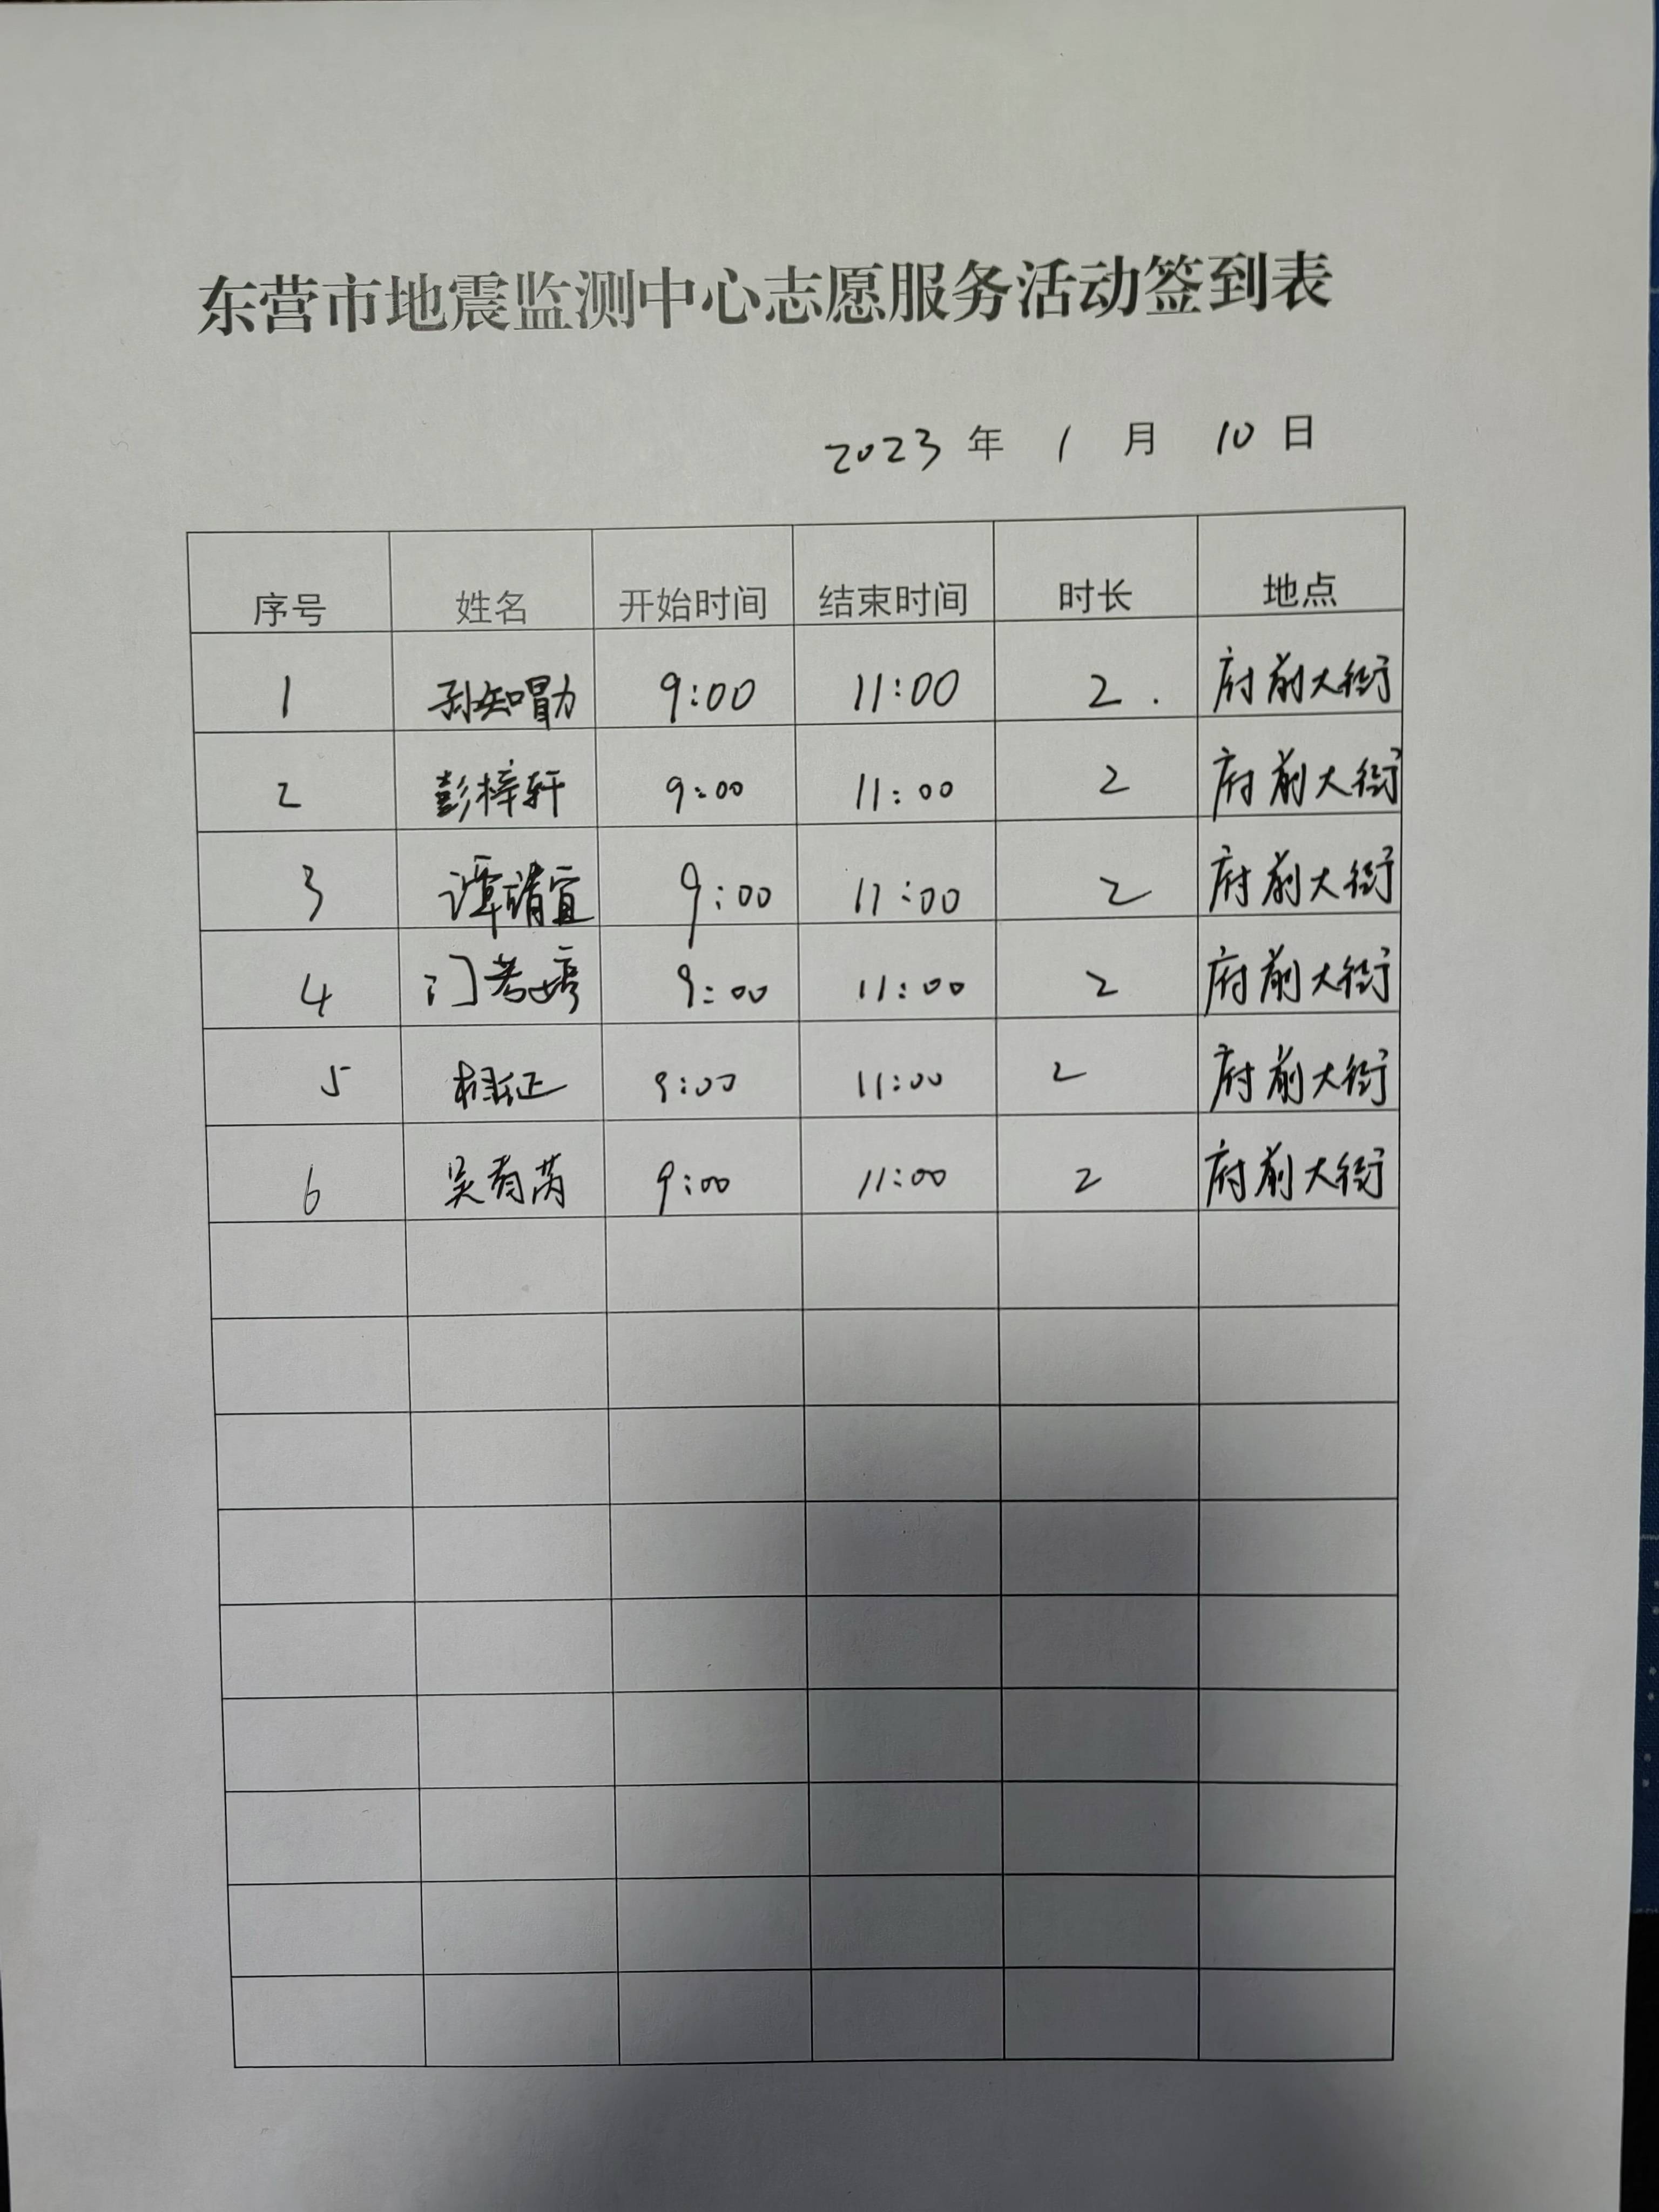 东营市地震监测中心志愿服务活动签到表
2023 年 1 月 10 日
序号 姓名 开始时间 结束时间 时长 地点
1 孙知勖 9:00 11:00 2. 府前大街
2 彭梓轩 9:00 11:00 2 府前大街
3 谭靖宜 9:00 11:00 2 府前大街
4 9:00 11:00 2 府前大街
5 9:00 11:00 2 府前大街
6 9:00 11:00 2 府前大街